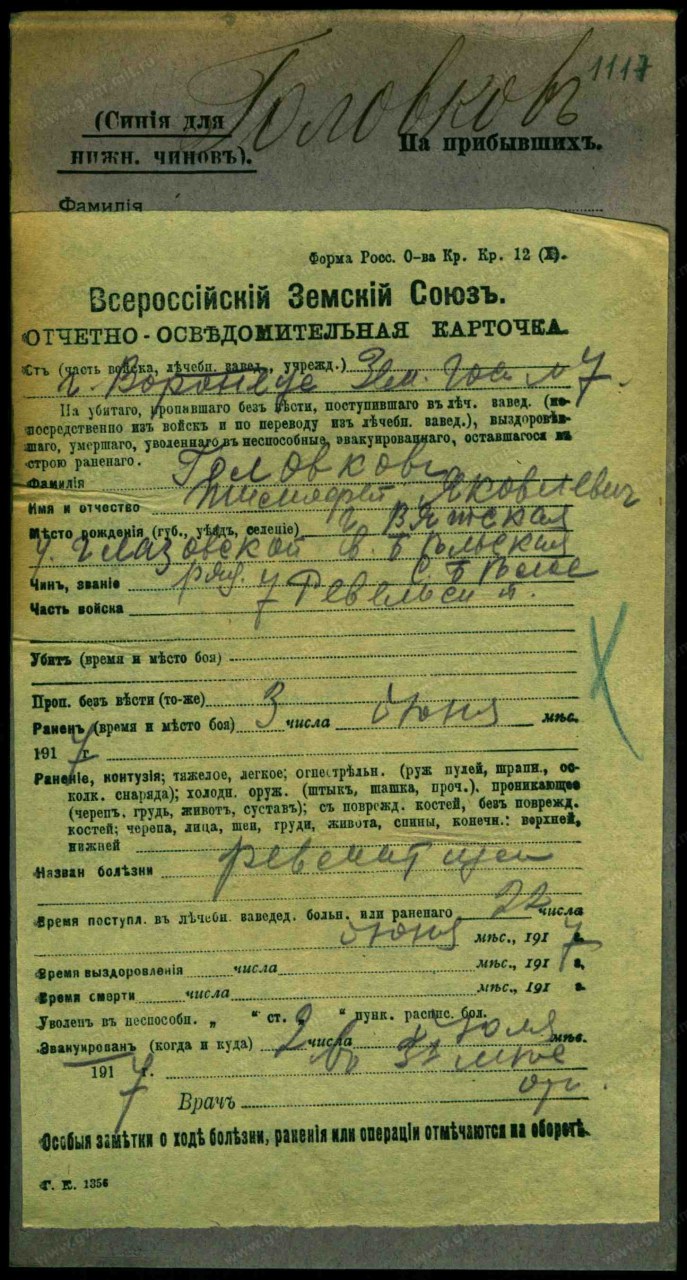 Головковъ 1117
(Синія для
нижн. чиновъ).
На прибывшихъ.
Фамилія
Форма Росс. О-ва Кр. Кр. 12 (X).
Всероссійскій Земскій Союзъ.
ОТЧЕТНО-ОСВѢДОМИТЕЛЬНАЯ КАРТОЧКА.
Отъ (часть войска, лѣчебн. завед., учрежд.)
г. Воронеже Зем. Гос № 7.
На убитаго, пропавшаго безъ вѣсти, поступившаго въ лѣч. завед. (не-
посредственно изъ войскъ и по переводу изъ лѣчебн. завед.), выздоровѣв-
шаго, умершаго, уволеннаго въ неспособные, эвакуированнаго, оставшагося въ
строю раненаго.
Фамилія Головковъ
Имя и отчество Тимофей Яковлевич
Мѣсто рожденія (губ., уѣздъ, селеніе) г Вятская
у. Глазовской в.
Чинъ, званіе ряд. с.
Часть войска 7 Ревельск п.
Убитъ (время и мѣсто боя)
Проп. безъ вѣсти (то-же)
Раненъ (время и мѣсто боя) 3 числа Июня мѣс.
1917 г.
Раненіе, контузія; тяжелое, легкое; огнестрѣльн. (руж пулей, шрапн., ос-
колк. снаряда); холодн. оруж. (штыкъ, шашка, проч.). проникающее
(черепъ, грудь, животъ, суставъ); съ поврежд. костей, безъ поврежд.
костей; черепа, лица, шеи, груди, живота, спины, конечн.: верхней,
нижней
Назван болѣзни ревматизм
Время поступл. въ лѣчебн. заведед. больн. или раненаго 22 числа
Июня мѣс., 1917 г.
Время выздоровленія числа мѣс., 191 г.
Время смерти числа мѣс., 191 г.
Уволен въ неспособн. „ “ ст. „ “ пунк. распис. бол.
Эвакуированъ (когда и куда) 2 числа Июля мѣс.
1917 г. в
Врачъ
Особыя замѣтки о ходѣ болѣзни, раненія или операціи отмѣчаются на оборотѣ.
Г. К. 1356
www.gwar.mil.ru